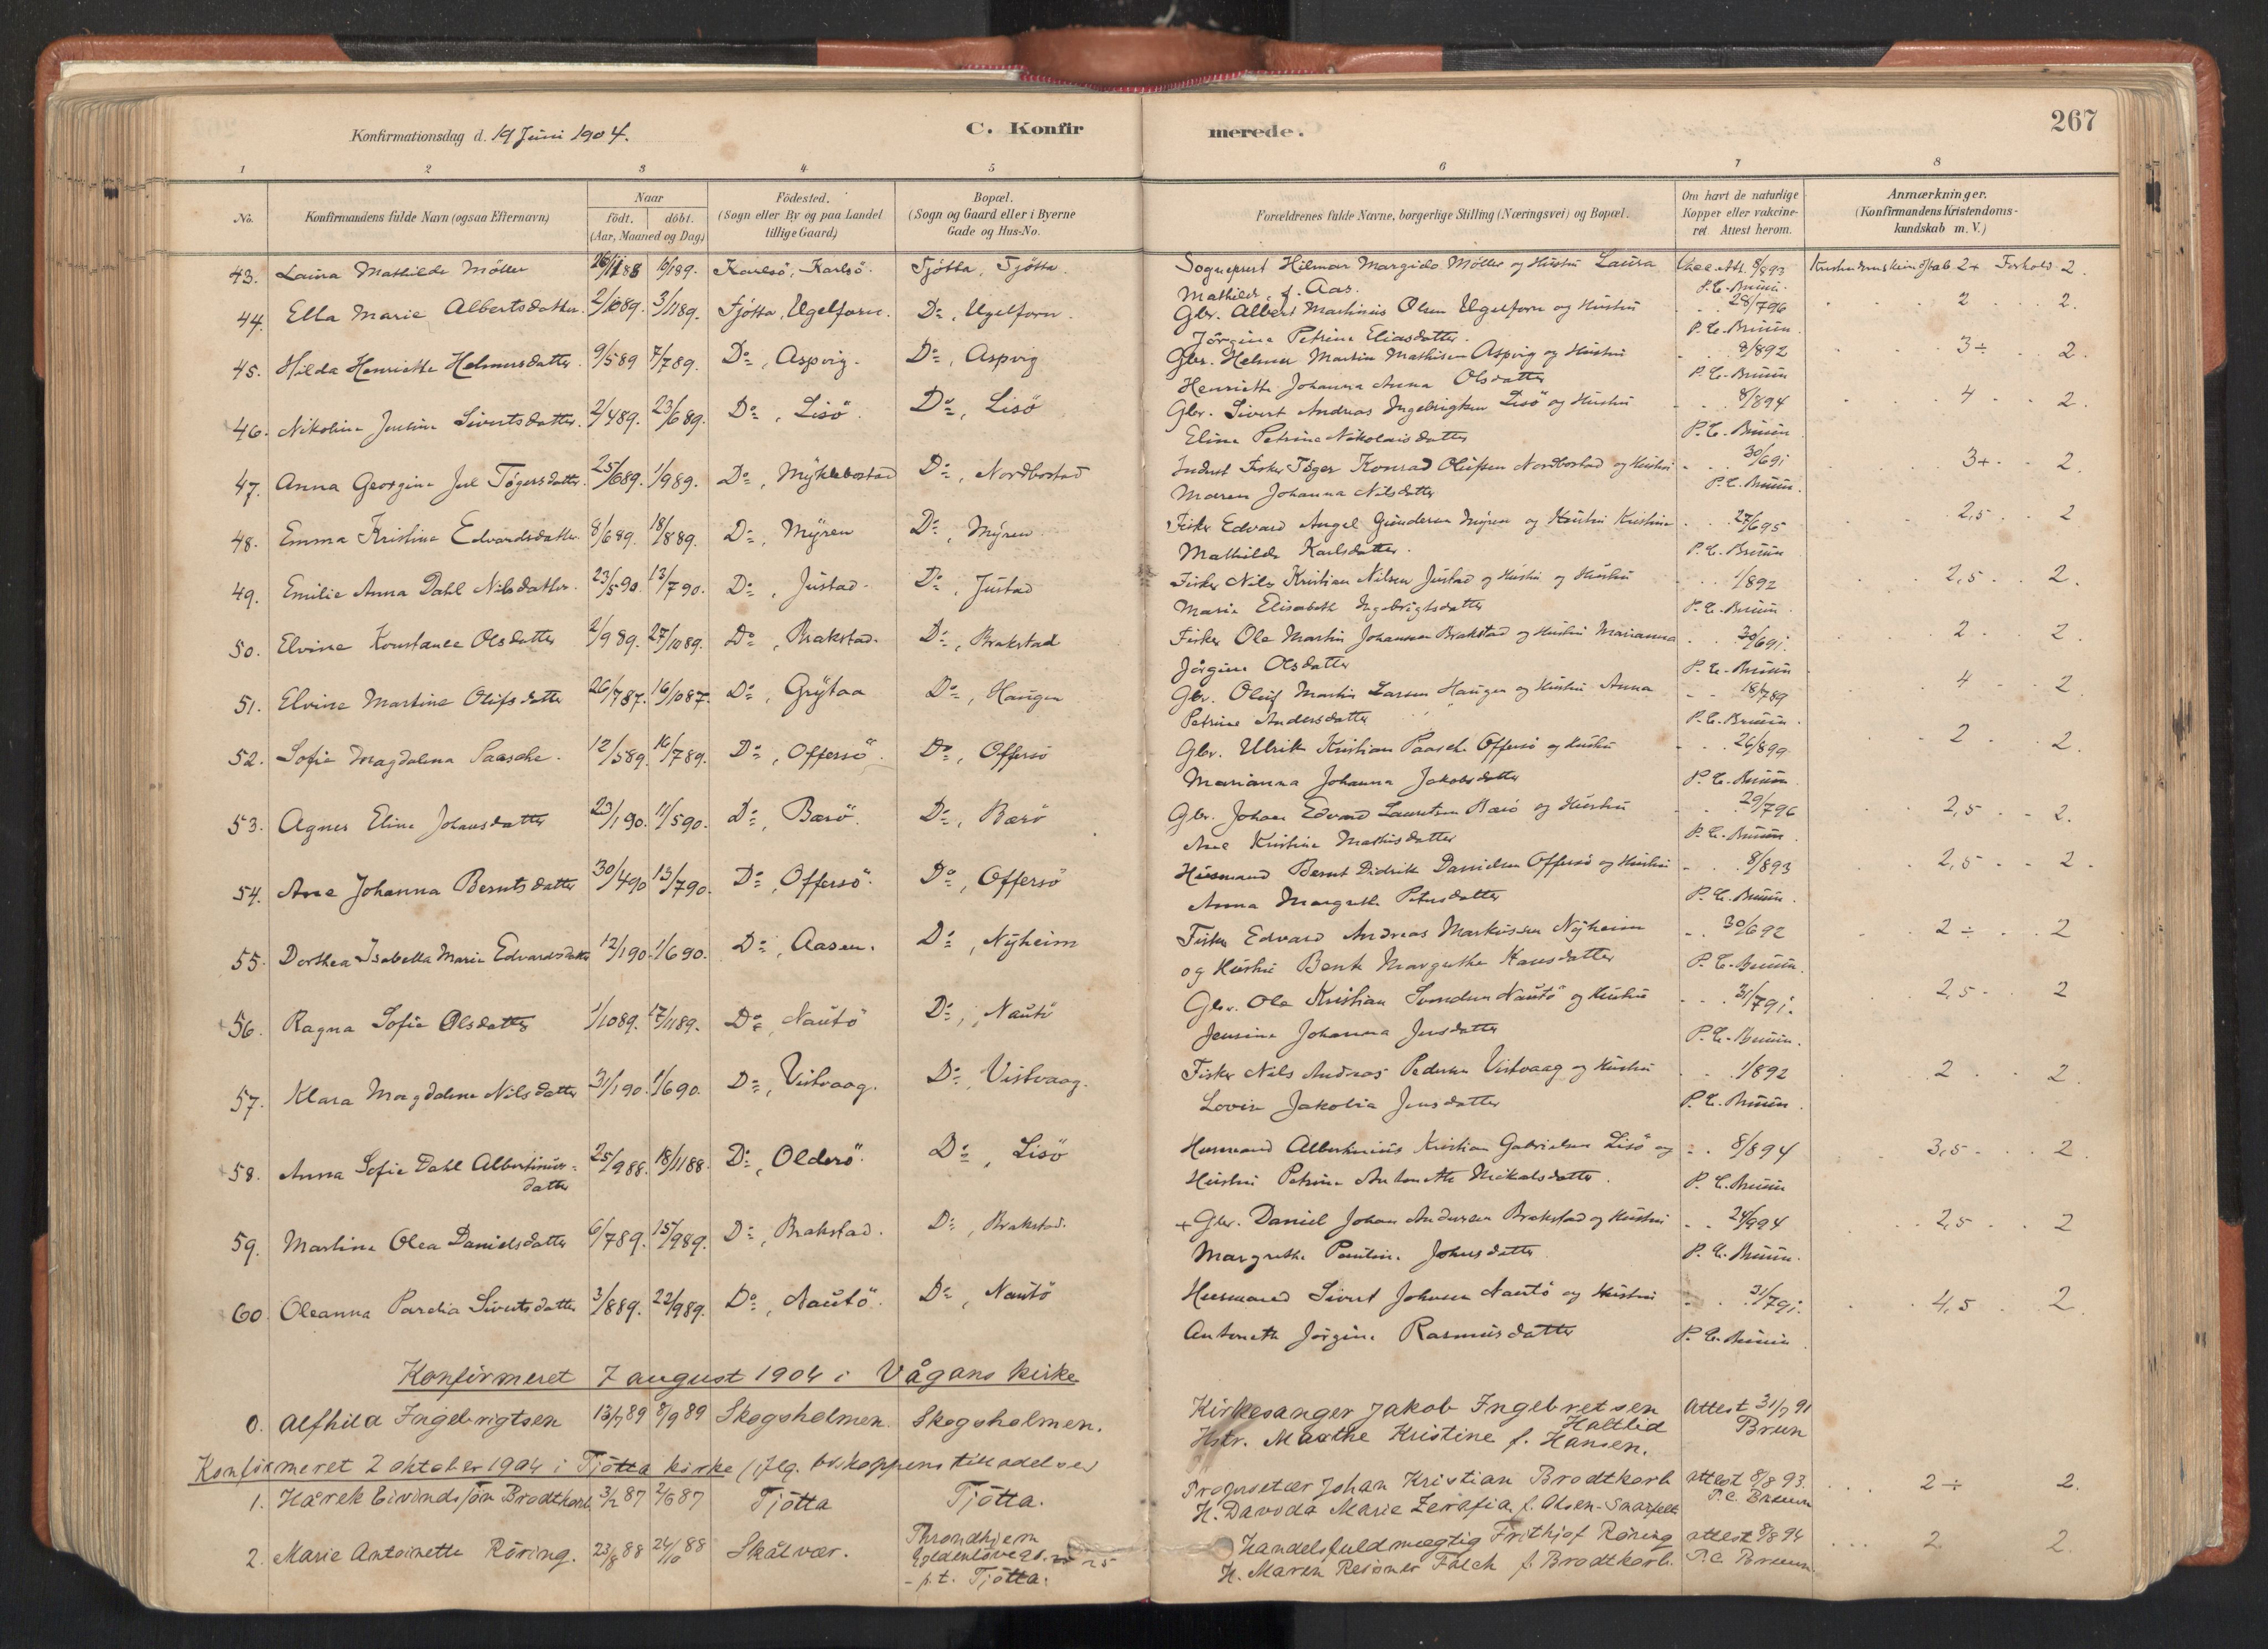 Konfirmationsdag d. 19 Juni 1904.
C. Konfirmerede.
267
1 2 3 4 5 6 7 8
No. Konfirmandens fulde Navn (ogsaa Efternavn) Naar født. døbt. (Aar, Maaned og Dag) Födested. (Sogn eller By og paa Landet tillige Gaard) Bopæl. (Sogn og Gaard eller i Byerne Gade og Hus-No. Forældrenes fulde Navne, borgerlige Stilling (Næringsvei) og Bopæl. Om havt de naturlige Kopper eller vakcineret Attest herom. Anmærkninger. (Konfirmandens Kristendomskundskab m. V.)
43. Laura Mathilde Möller 189. Karlsö, Karlsö. Tjötta, Tjötta. Sogneprest Hilmar Margido Möller og Hustru Laura 8/893 2+ Forhold 2.
Mathilde, f. Aas. P. C. Bruun.
44. Ella Marie Albertsdatter. 2/1089. 3/1189. Tjötta, Ugelforn. Do, Ugelforn. Gbr. Albert Martinius Olsen Ugelforn og Hustru 28/796 2 2.
Jörgine Petrine Eliasdatter. P. C. Bruun.
45. Hilda Henriette Helmersdatter. 9/589 7/789. Do, Aspvig. Do, Aspvig Gbr. Helmer Martin Mathisen Aspvig og Hustru 8/892 3÷ 2.
Henriette Johanna Anna Olsdatter P. C. Bruun
46. Nikoline Jensine Sivertsdatter. 2/489. 23/689. Do, Lisö. Do, Lisö Gbr. Sivert Andreas Ingebrigtsen Lisö og Hustru 8/894 4 2.
Eline Petrine Nikolaisdatter P. C. Bruun
47. Anna Georgine Jul Tögersdatter. 25/689. 1/989. Do, Myklebostad Do, Nordbostad Inderst Fisker Töger Konrad Olufsen Nordbostad og Hustru 30/691 3+ 2.
Maren Johanna Nilsdatter P. C. Bruun.
48. Emma Kristine Edvardsdatter. 8/689. 18/889. Do, Myren Do, Myren Fisker Edvard Angel Gundersen Myren og Hustru Kristine 27/695 2,5 2
Mathilde Karlsdatter. P. C. Bruun
49. Emilie Anna Dahl Nilsdatter. 23/590. 13/790. Do, Justad. Do, Justad Fisker Nils Kristian Nilsen Justad og Hustru og Hustru 1/892 2,5 2.
Marie Elisabeth Ingebrigtsdatter P. C. Bruun.
50. Elvine Konstance Olsdatter 2/989. 27/1089. Do, Brakstad. Do, Brakstad Fisker Ole Martin Johansen Brakstad og Hustru Marianna 30/691. 2 2.
Jörgine Olsdatter P. C. Bruun
51. Elvine Martine Olufsdatter 26/787. 16/1087. Do, Grytaa Do, Haugen Gbr. Oluf Martin Larsen Haugen og Hustru Anna 18/789 4 2.
Petrine Andersdatter P. C. Bruun.
52. Sofie Magdalena Paasche. 12/589. 16/789. Do, Offersö. Do, Offersö Gbr. Ulrik Kristian Paasche Offersö og Hustru 26/899. 2 2.
Marianna Johanna Jakobsdatter P. C. Bruun.
53. Agnes Eline Johansdatter 23/190. 11/590. Do, Bærö. Do, Bærö Gbr. Johan Edvard Lauritsen Bærö og Hustru 29/796 2,5 2.
Ane Kristine Mathisdatter P. C. Bruun.
54. Ane Johanna Berntsdatter 30/490 13/790. Do, Offersö. Do, Offersö Husmand Bernt Didrik Danielsen Offersö og Hustru 8/893 2,5 2.
Anna Margrethe Petersdatter P. C. Bruun.
55. Dorthea Isabella Marie Edvardsdatter 12/190. 1/690. Do, Aasen. Do, Nyheim Fisker Edvard Andreas Markussen Nyheim 30/692 2÷ 2
og Hustru Berit Margrethe Hansdatter P. C. Bruun.
56. Ragna Sofie Olsdatter 1/1089. 17/1189. Do, Nautö Do, Nautö Gbr. Ole Kristian Svendsen Nautö og Hustru 31/791. 2,5 2
Jensine Johanna Jensdatter P. C. Bruun.
57. Klara Magdalene Nilsdatter 31/190. 1/690. Do, Vistvaag. Do, Vistvaag. Fisker Nils Andreas Pedersen Vistvaag og Hustru 1/892 2 2.
Lovise Jakobia Jensdatter P. C. Bruun.
58. Anna Sofie Dahl Albertiniusdatter 25/988. 18/1188. Do, Olderö. Do, Lisö Husmand Albertinius Kristian Gabrielsen Lisö og 8/894 3,5 2.
Hustru Petrine Antonette Mikalsdatter. P. C. Bruun
59. Martine Olea Danielsdatter 6/789. 15/989. Do, Brakstad. Do, Brakstad. + Gbr. Daniel Johan Andersen Brakstad og Hustru 24/994 2,5 2
Margrethe Pauline Johnsdatter P. C. Bruun.
60. Oleanna Parelia Sivertsdatter 3/889. 22/989. Do, Nautö. Do, Nautö Husmand Sivert Johnsen Nautö og Hustru 31/791. 4,5 2.
Antonette Jörgine Rasmusdatter P. C. Bruun
Konfirmeret 7 august 1904 i Vågans kirke
0. Alfhild Ingebrigtsen 13/789 8/989 Skogsholmen. Skogsholmen. Kirkesanger Jakob Ingebretsen Haltlid Attest 31/7 91
Hstr. Marthe Kristine f. Hansen. Bruun
Konfirmeret 2 oktober 1904 i Tjötta kirke (iflg. biskoppens tilladelse)
1. Hårek Eivindssön Brodtkorb 3/2 87 2/6 87 Tjötta Tjötta. Proprietær Johan Kristian Brodtkorb attest 8/8 93. 2÷ 2.
H. Davoda Marie Zerafia f. Olsen-Snarfelt P. C. Bruun
2. Marie Antoinette Röring. 23/8 88 24/10 88 Skålvær. Throndhjem 25 - p.t. Tjötta. Handelsfuldmægtig Frithjof Röring attest 8/8 94 2 2.
H. Maren Falch f. Brodtkorb. P. C. Bruun.